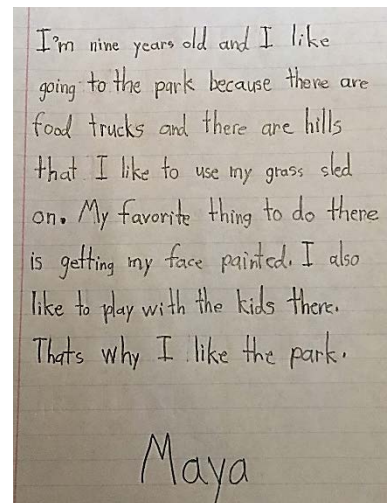 I'm nine years old and I like
going to the park because there are
food trucks and there are hills
that I like to use my grass sled
on. My favorite thing to do there
is getting my face painted. I also
like to play with the kids there.
Thats why I like the park.
Maya